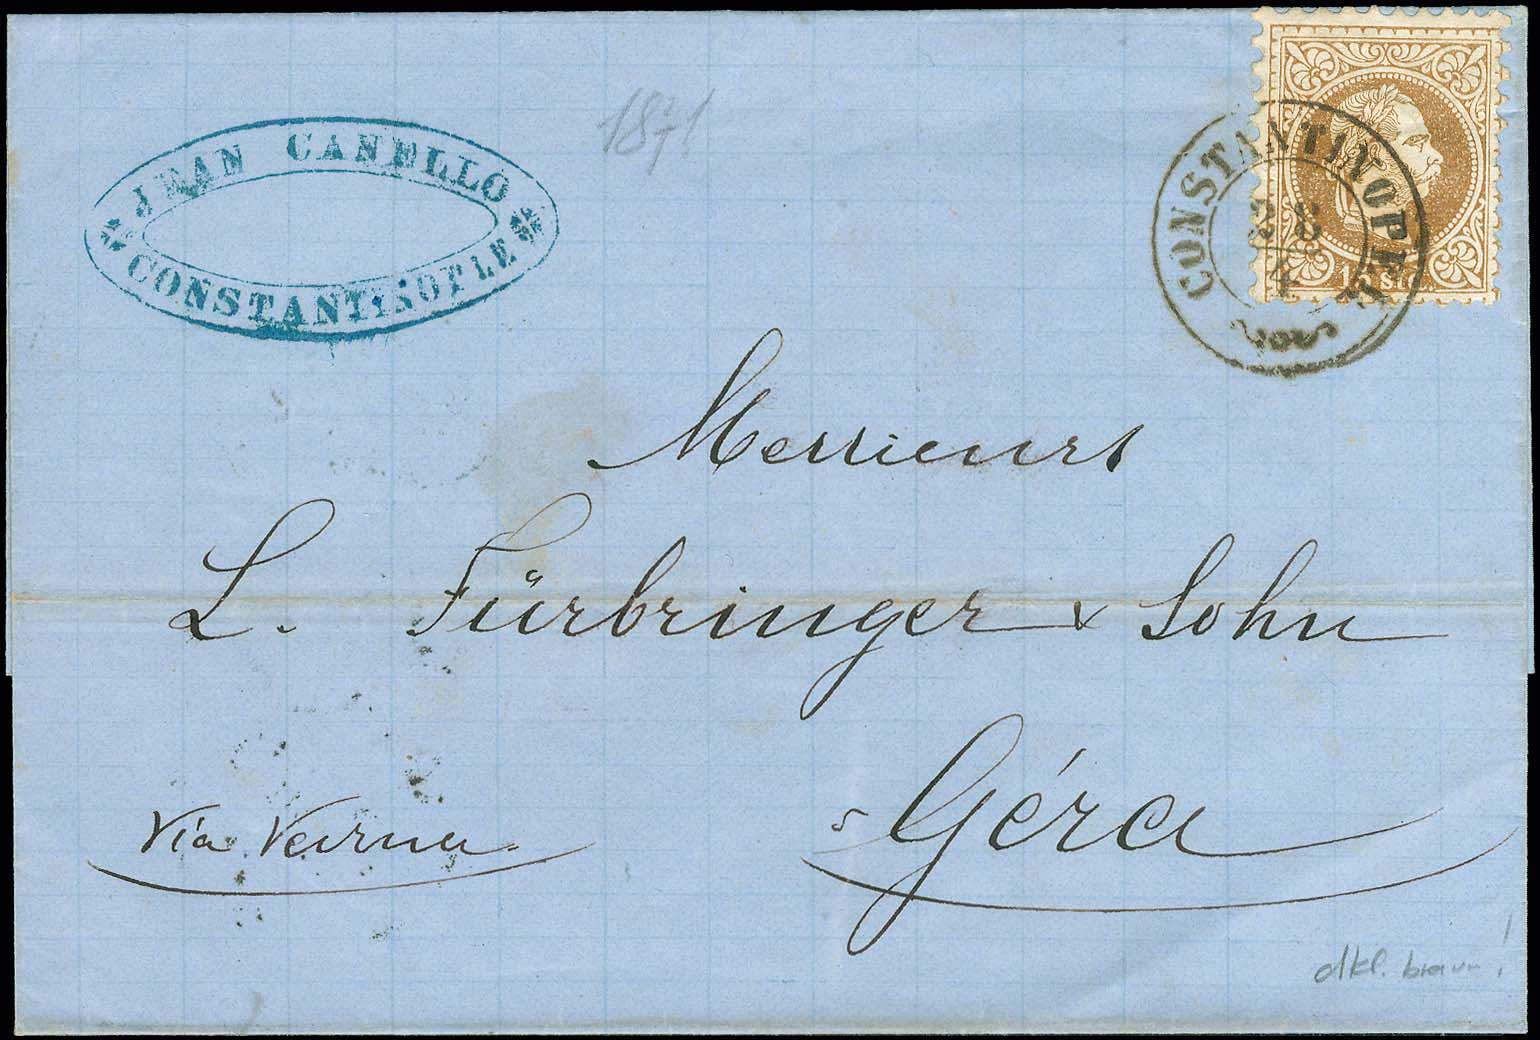 1871
JEAN CANELLO
CONSTANTINOPLE
CONSTANTINOPEL
28
4
15 sld.
Messieurs
L. Fürbringer & Sohn
Géra
Via Varna.
dkl. braun!